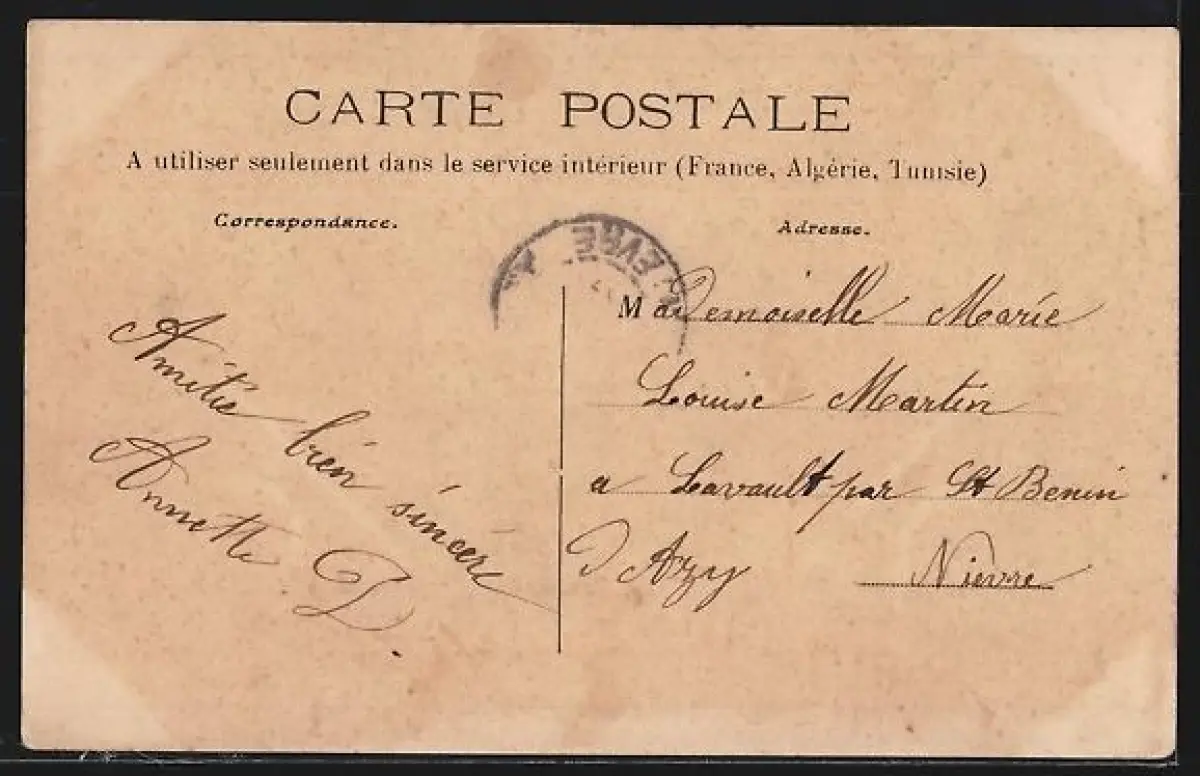 CARTE POSTALE
A utiliser seulement dans le service intérieur (France, Algérie, Tunisie)
Correspondance.
Adresse.
Amitié bien sincère
Annette D.
Mademoiselle Marie
Louise Martin
a Lavault par St Benin
D'Azy Nièvre